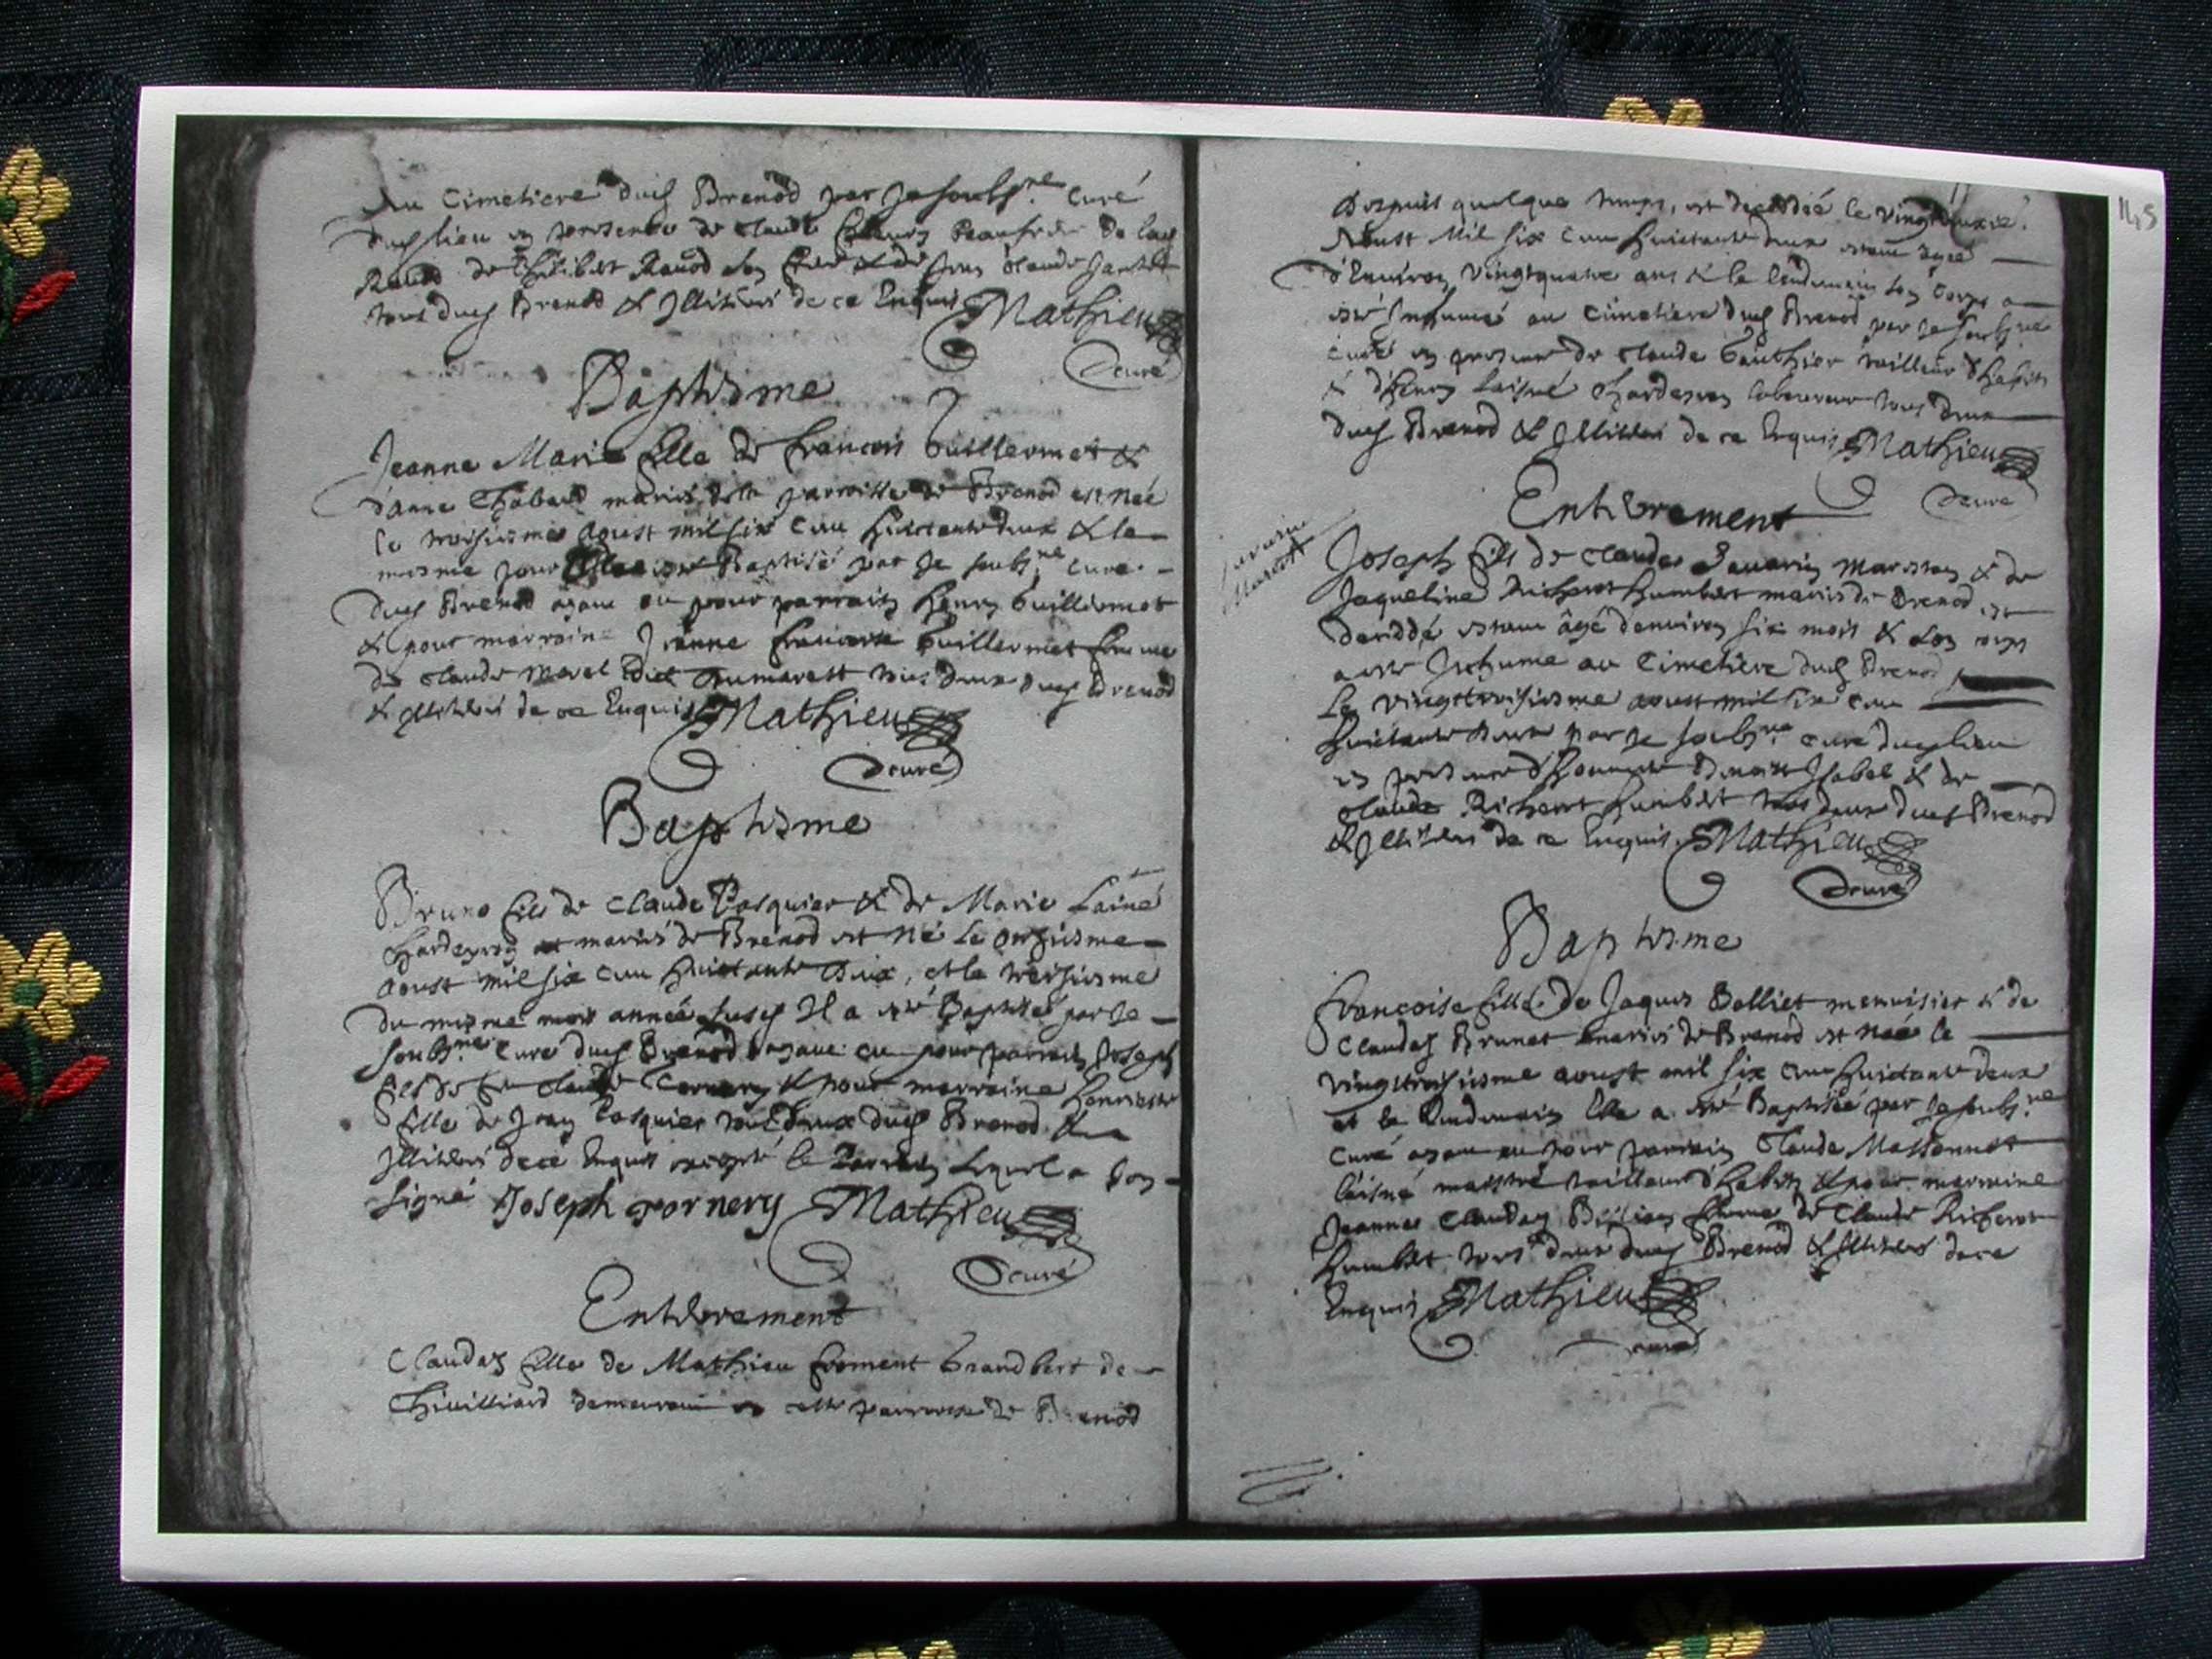 Au Cimetiere dud Brenod par Je soubsne Curé
dud lieu en presence de Claude beaufrere de lad
de Philibert Ravod son & de Claude
tous dud Brenod & Illiterés de ce Enquis Mathieu
curé
Baptesme
Jeanne Marie fille de francois Guillermet &
d'anne Chaband mariés de la parroisse de Brenod est née
le troisiesme aoust mil six cens huictante deux & le
mesme jour Elle a esté Baptisée par Je soubsne Curé
dud Brenod ayant eu pour parrain henry Guillermet
& pour marraine Jeanne francoise Guillermet femme
de Claude Morel dict tous deux dud Brenod
& Illiterés de ce Enquis Mathieu
curé
Baptesme
Bruno fils de Claude Pasquier & de Marie Lainé
chardeyron mariés de Brenod est né Le onziesme
aoust mil six cens huictante deux, et le treisiesme
du mesme mois année susd Il a esté Baptisé par Je
soubsne Curé dud Brenod ayant eu pour parrain Joseph
fils de feu Claude Cornery & pour marraine
fille de Jean Pasquier tous deux dud Brenod &
Illiterés de ce Enquis excepté le Parrain Lequel a soub
signé Joseph Cornery Mathieu
curé
Enterrement
Claudaz fille de Mathieu froment Grandbert de
Chivilliard demeurant en cette parroisse de Brenod
145
Despuis quelque temps, est decedée le vingtdeuxie
Aoust Mil six cens huictante deux estant agée
d'Environ vingtquatre ans & le lendemain son Corps a
esté Inhumé au Cimetiere dud Brenod par Je soubsne
curé en presence de Claude Gauthier tailleur d'habits
& d'henry Laisné Chardeyron laboureur tous deux
dud Brenod & Illiterés de ce Enquis Mathieu
curé
Enterrement
Joseph fils de Claude Savarin & de
Jaqueline Richerot humbert mariés de Brenod est
deceddé estant âgé denviron six mois & son corps
a esté Inhumé au Cimetiere dud Brenod
Le vingttroisiesme aoust mil six cens
huictante deux par Je soubsne curé dud lieu
en presence d'honneste Benoist Isabel & de
Claude Richerot humbert tous deux dud Brenod
& Illiterés de ce Enquis Mathieu
curé
Baptesme
francoise fille de Jaques Bolliet menuisier & de
Claudaz Brunet mariés de Brenod est née le
vingttroisiesme aoust mil six cens huictante deux
et le lendemain Elle a esté Baptisée par Je soubsne
Curé ayant eu pour parrain Claude Massonnet
l'aisné maistre tailleur d'habits & pour marraine
Jeanne Claudaz femme de Claude Richerot
humbert tous deux dud Brenod & Illiterés de ce
Enquis Mathieu
curé